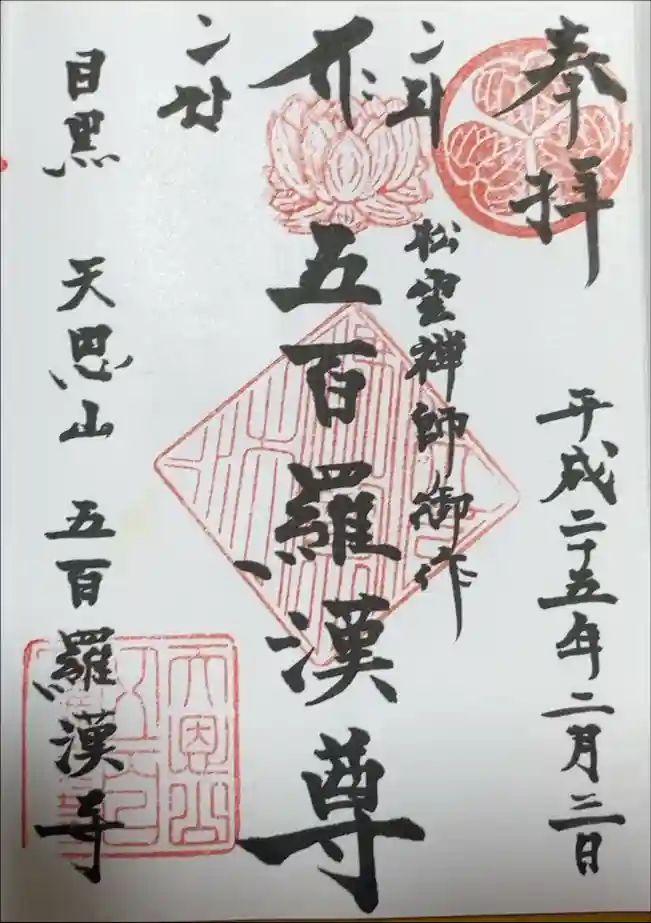 奉拝
平成二十五年二月三日
松雲禅師御作
五百羅漢尊
目黒 天恩山 五百羅漢寺